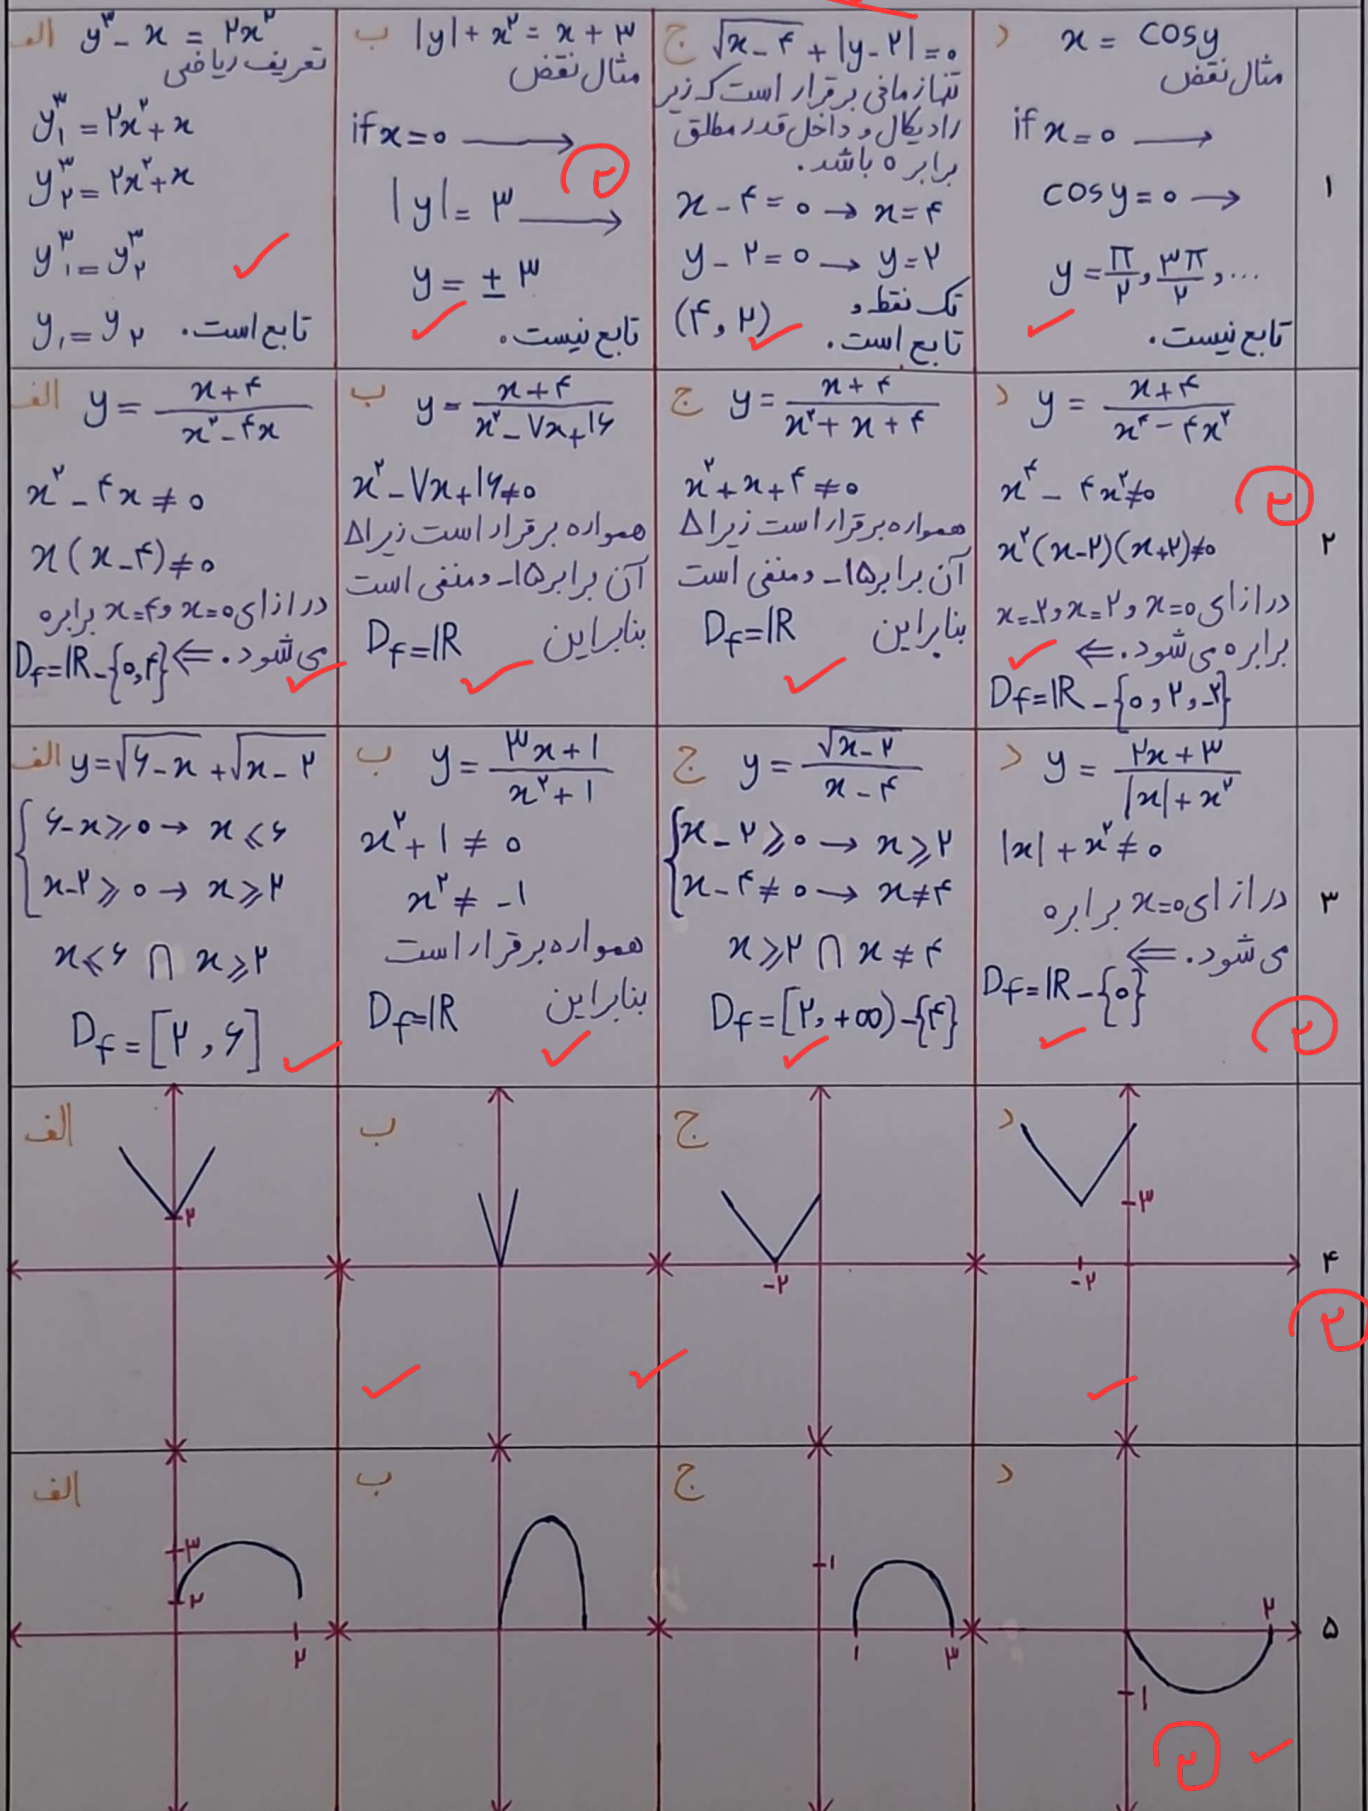 الف y³ - x = ۲x²
تعریف ریاضی
y₁³ = ۲x² + x
y₂³ = ۲x² + x
y₁³ = y₂³
y₁ = y₂ تابع است.
ب |y| + x² = x + ۳
مثال نقض
if x = ۰ ⟶
|y| = ۳ ⟶
y = ± ۳
تابع نیست.
۲
ج √(x - ۴) + |y - ۲| = ۰
تنها زمانی برقرار است که زیر
رادیکال و داخل قدر مطلق
برابر ۰ باشد.
x - ۴ = ۰ → x = ۴
y - ۲ = ۰ → y = ۲
(۴, ۲) تک نقطه و
تابع است.
د x = cosy
مثال نقض
if x = ۰ ⟶
cosy = ۰ →
y = π/۲, ۳π/۲, ...
تابع نیست.
۱
الف y = (x + ۴)/(x² - ۴x)
x² - ۴x ≠ ۰
x(x - ۴) ≠ ۰
در ازای x = ۰ و x = ۴ برابر ۰
می شود. ⇐ D_f = IR - {۰, ۴}
ب y = (x + ۴)/(x² - ۷x + ۱۶)
x² - ۷x + ۱۶ ≠ ۰
همواره برقرار است زیرا Δ
آن برابر ۱۵- و منفی است
بنابراین D_f = IR
ج y = (x + ۴)/(x² + x + ۴)
x² + x + ۴ ≠ ۰
همواره برقرار است زیرا Δ
آن برابر ۱۵- و منفی است
بنابراین D_f = IR
د y = (x + ۴)/(x⁴ - ۴x²)
x⁴ - ۴x² ≠ ۰
x²(x - ۲)(x + ۲) ≠ ۰
در ازای x = ۰ و x = ۲ و x = -۲
برابر ۰ می شود. ⇐
D_f = IR - {۰, ۲, -۲}
۲
۲
الف y = √(۶ - x) + √(x - ۲)
۶ - x ≥ ۰ → x ≤ ۶
x - ۲ ≥ ۰ → x ≥ ۲
x ≤ ۶ ∩ x ≥ ۲
D_f = [۲, ۶]
ب y = (۳x + ۱)/(x² + ۱)
x² + ۱ ≠ ۰
x² ≠ -۱
همواره برقرار است
بنابراین D_f = IR
ج y = √(x - ۲)/(x - ۴)
x - ۲ ≥ ۰ → x ≥ ۲
x - ۴ ≠ ۰ → x ≠ ۴
x ≥ ۲ ∩ x ≠ ۴
D_f = [۲, +∞) - {۴}
د y = (۲x + ۳)/(|x| + x²)
|x| + x² ≠ ۰
در ازای x = ۰ برابر ۰
می شود. ⇐
D_f = IR - {۰}
۳
۲
الف
۲
ب
ج
-۲
د
۳
-۲
۴
۲
الف
۳
۲
۲
ب
ج
۱
۱
۳
د
۲
-۱
۵
۲